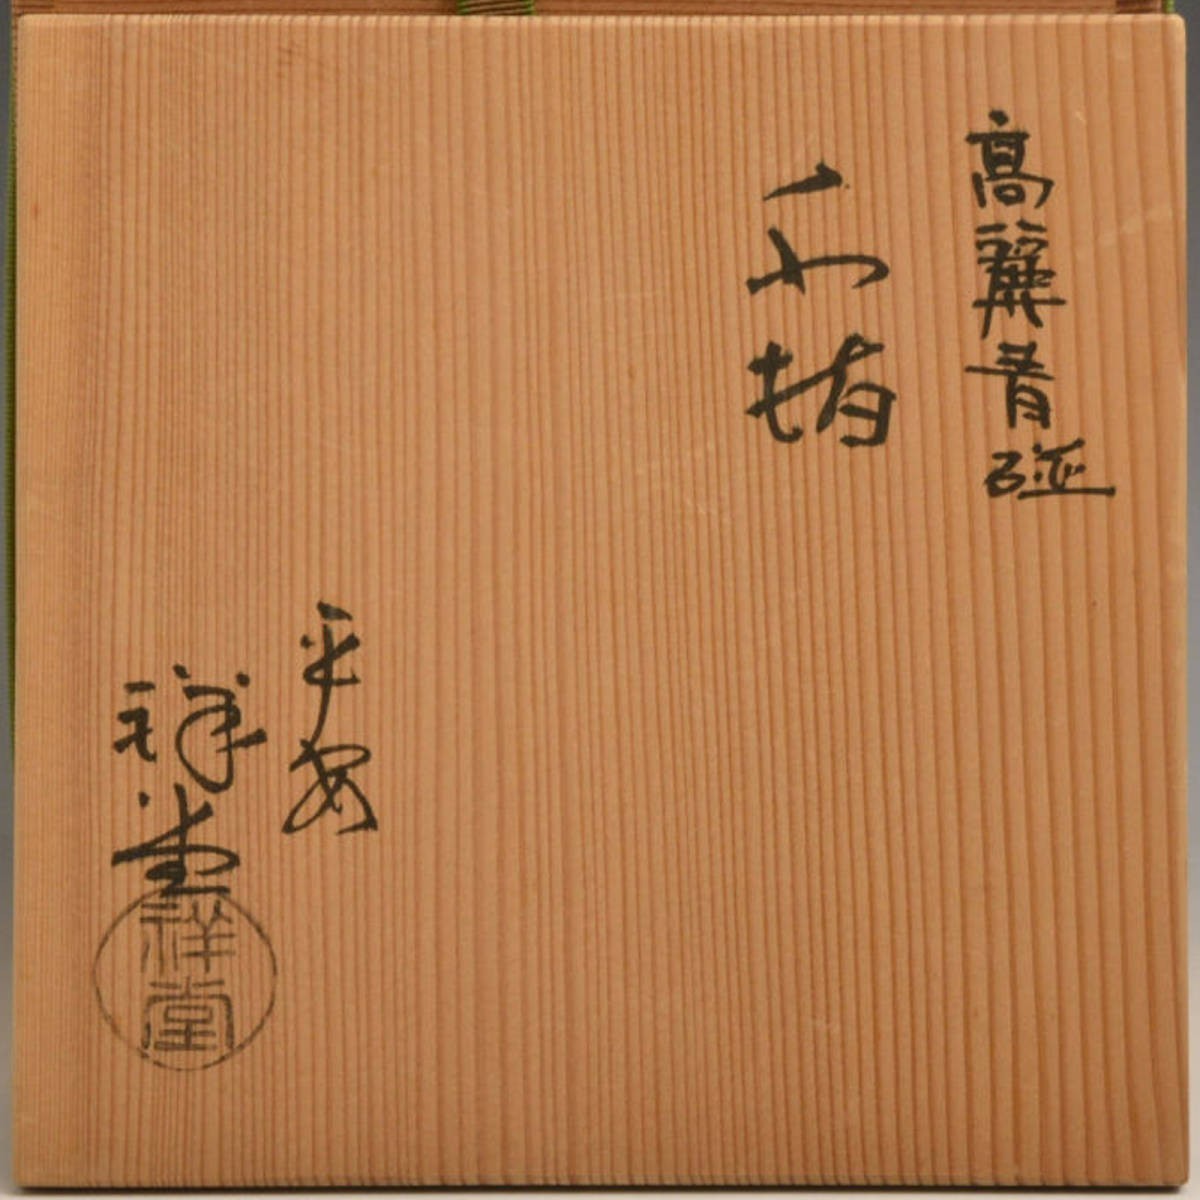 高麗青磁
水指
平安
祥堂
祥堂